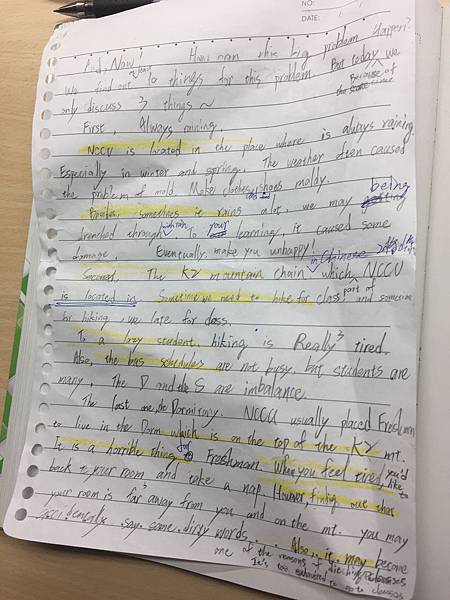 NO:
DATE: / /
And, Now! How can this big problem happen?
We find out 10 things for this problem. But today we
only discuss 3 things ~ Because of the time
First, Always raining.
NCCU is located in the place where is always raining.
Especially in winter and spring. The weather often caused
the problem of mold. Make clothes, shoes moldy.
Besides, sometimes it rains a lot, we may being
drenched through when to your learning, it caused some
damage, Eventually, make you unhappy!
Second, The K2 mountain chain in Chinese which NCCU
is located in. Sometime we need to hike for class, and sometime
for hiking, we late for class.
To a lazy student, hiking is Really³ tired.
Also, the bus schedules are not busy, but students are
many, The D and the S are imbalance.
The last one, the Dormitory. NCCU usually placed Freshman
to live in the Dorm which is on the top of the K2 mt.
It is a horrible thing for Freshman. When you feel tired, you'd like to
back to your room and take a nap. However, finding out that
your room is far³ away from you and on the mt. you may
say some dirty words... Also, it may become
one of the reasons of ditching classes
It's too exhausted to go to classes